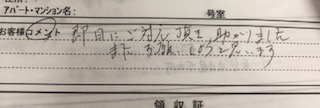 アパート・マンション名: 号室
お客様コメント 即日にご対応頂き、助かりました
また お願いしようと思います
領収証